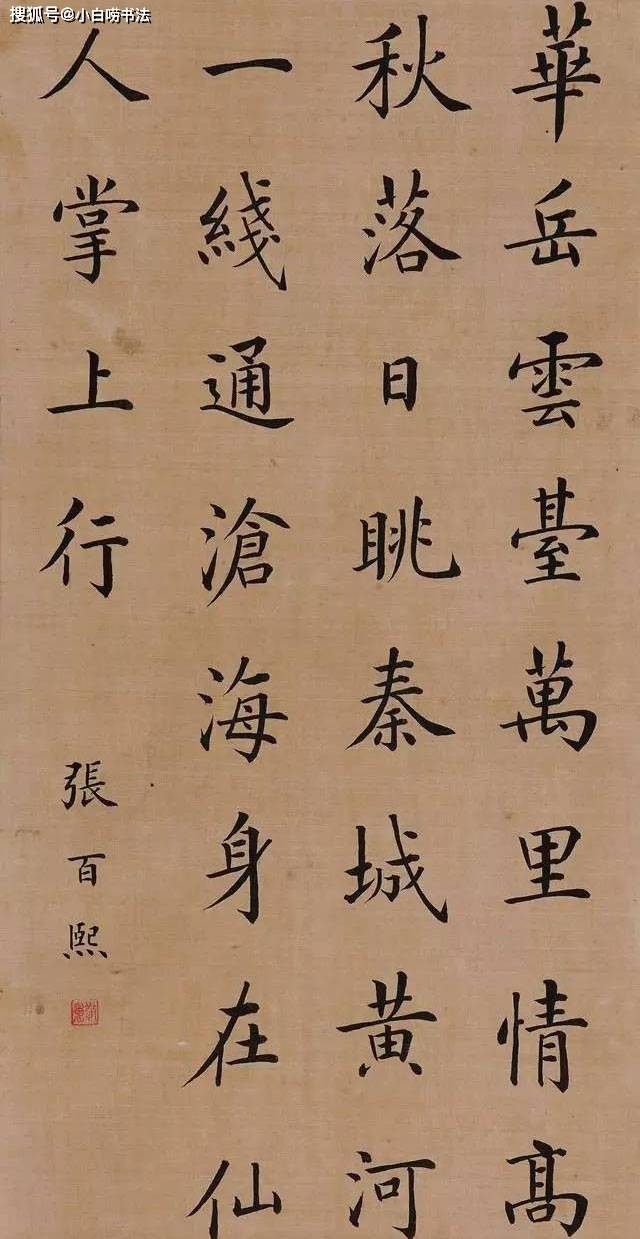 搜狐号@小白唠书法
華岳雲臺萬里情高
秋落日眺秦城黄河
一綫通滄海身在仙
人掌上行
張百熙